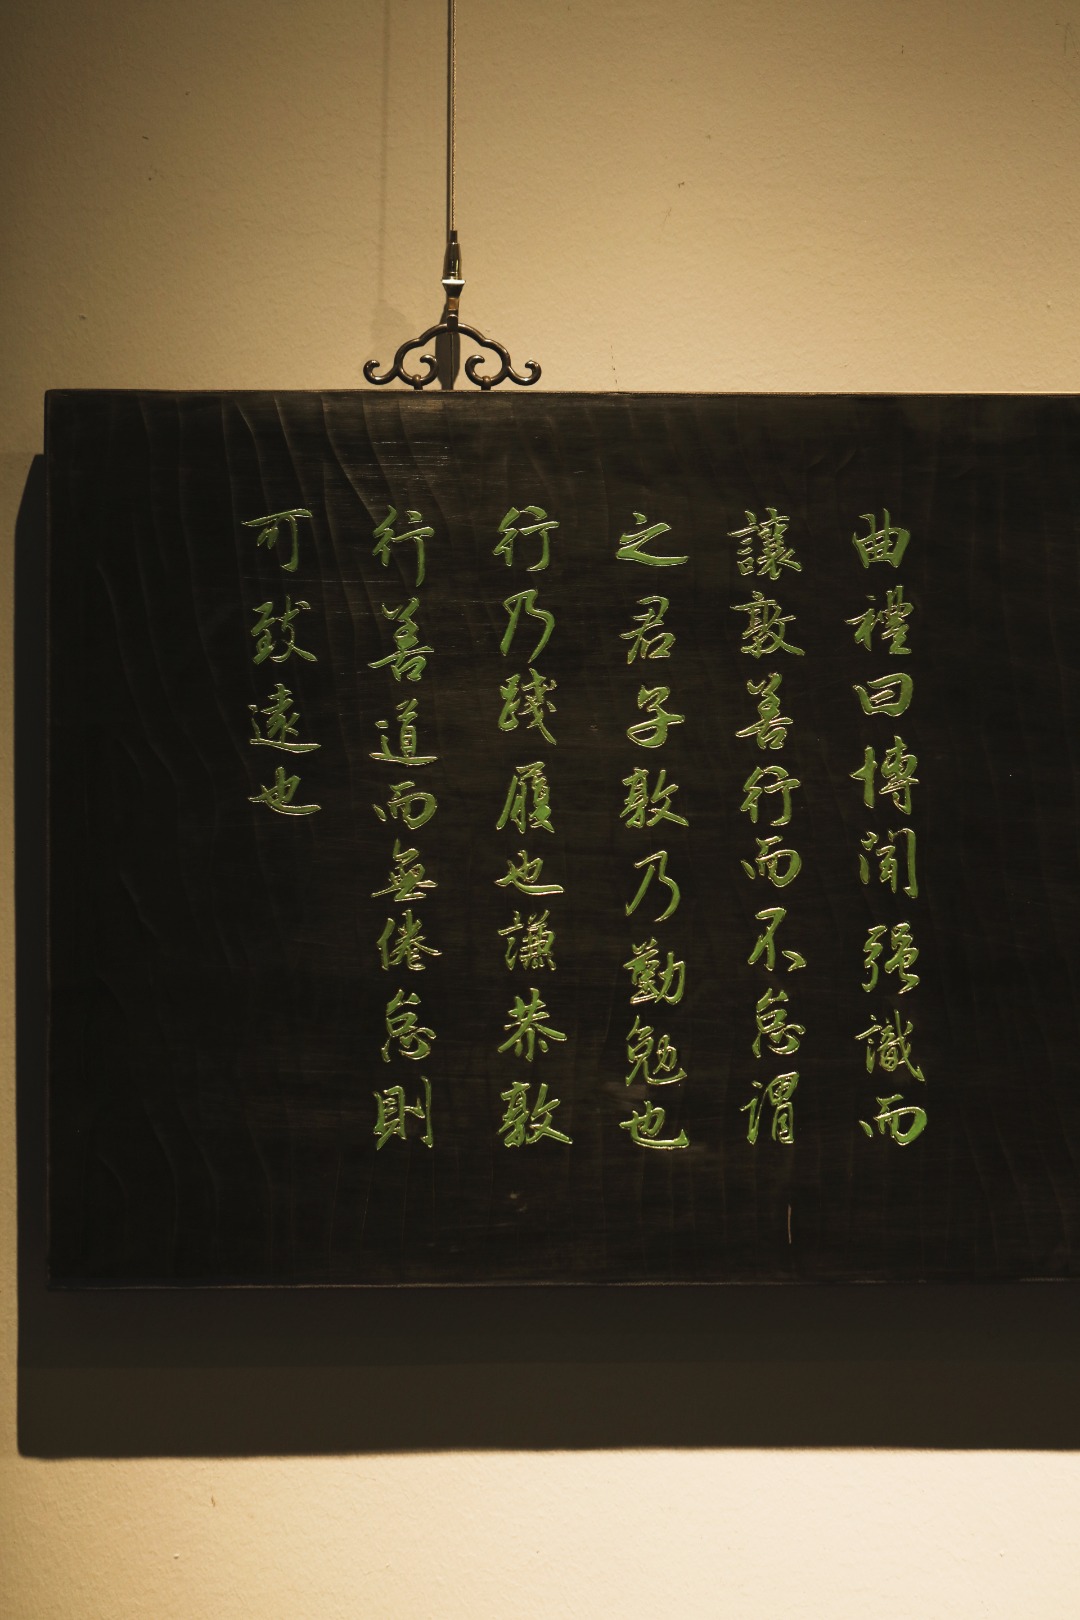 曲禮曰博聞强識而
讓敦善行而不怠謂
之君子敦乃勤勉也
行乃踐履也謙恭敦
行善道而無倦怠則
可致遠也